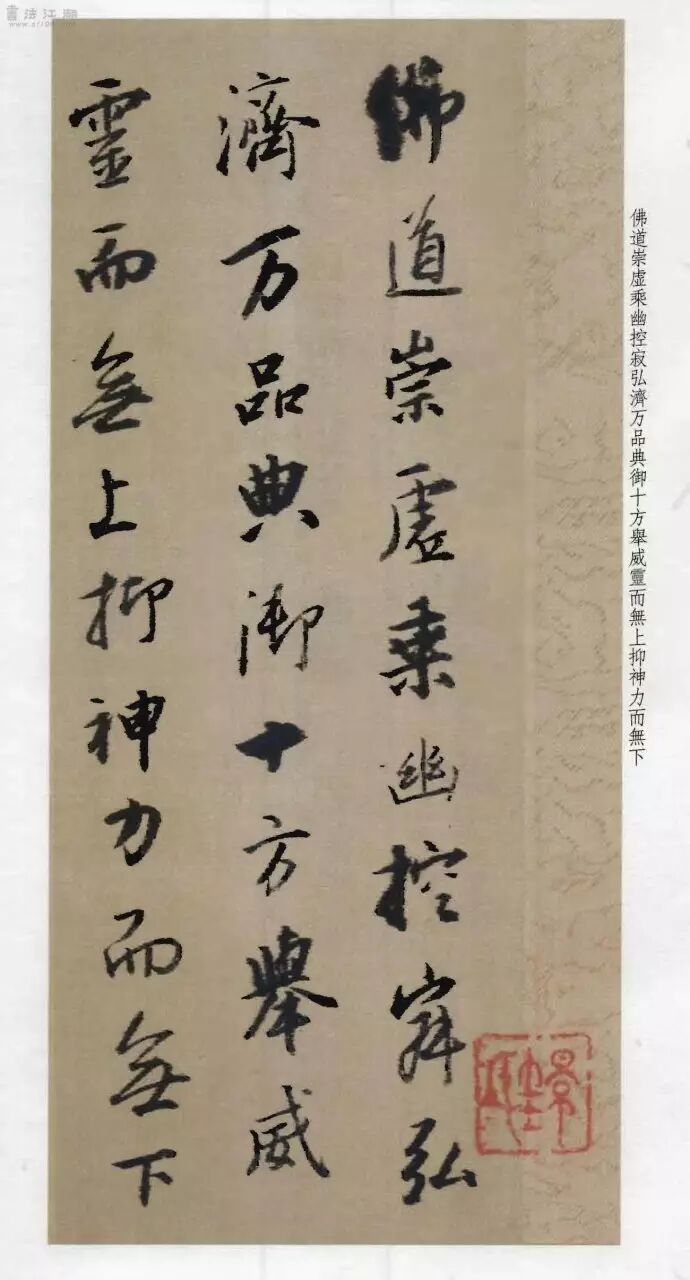 書法江湖
佛道崇虛乘幽控寂弘
濟万品典御十方舉威
靈而無上抑神力而無下
佛道崇虛乘幽控寂弘濟万品典御十方舉威靈而無上抑神力而無下